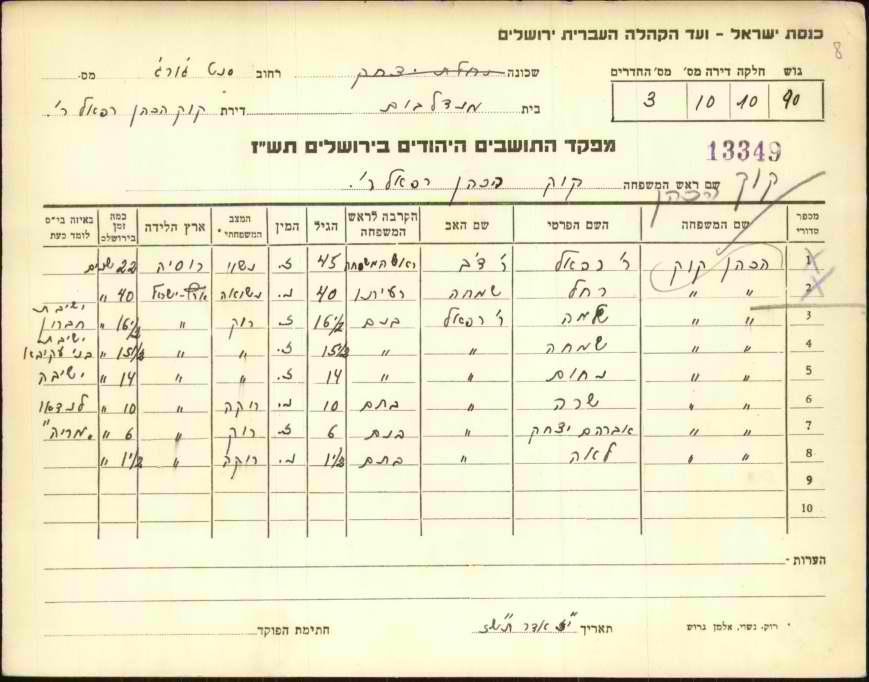 כנסת ישראל - ועד הקהלה העברית ירושלים
8
גוש חלקה דירה מס' מס' החדרים
90 10 10 3
שכונה נחלת יצחק רחוב סנט ג'ורג' מס.
בית מנדלבוים דירת קוק הכהן רפאל ר'.
מפקד התושבים היהודים בירושלים תש"ז
13349
קוק הכהן
שם ראש המשפחה קוק הכהן רפאל ר'.
מספר סדורי שם המשפחה השם הפרטי שם האב הקרבה לראש המשפחה הגיל המין המצב המשפחתי * ארץ הלידה כמה זמן בירושלים באיזה בי"ס לומד כעת
1 הכהן קוק ר' רפאל ר' דב ראש המשפחה 45 ז. נשוי רוסיה 22 שנים
2 " " רחל שמחה רעיתו 40 נ. נשואה ארץ-ישראל 40 "
3 " " שלמה ר' רפאל בנם 16 1/2 ז. רוק " 16 1/2 " ישיבת חברון
4 " " שמחה " " 15 1/2 ז. " " 15 1/2 " ישיבת בני עקיבא
5 " " נחום " " 14 ז. " " 14 " ישיבה
6 " " שרה " בתם 10 נ. רוקה " 10 " למדאו
7 " " אברהם יצחק " בנם 6 ז. רוק " 6 " "מריה"
8 " " לאה " בתם 1 1/2 נ. רוקה " 1 1/2 "
9
10
הערות -
* רוק, נשוי, אלמן גרוש תאריך י"ג אדר תש"ז חתימת הפוקד